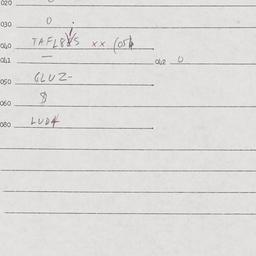 020
030 0
040 TAFL8 S xx (05
041 — 042 0
050 GLUZ-
060 8
080 LUD4